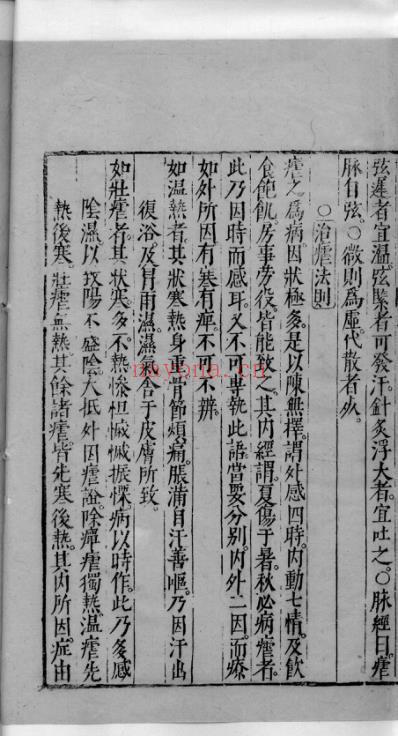 弦遲者宜温弦緊者可發汗針灸浮大者宜吐之〇脉經曰瘧
脉自弦〇微則爲虛代散者死
〇治瘧法則
瘧之爲病因狀極多是以陳無擇謂外感四時内動七情及飲
食飽飢房事勞役皆能致之其内經謂夏傷于暑秋必病瘧者
此乃因時而感耳又不可專執此語當要分别内外二因而療
如外所因有寒有癉不可不辨
如温熱者其狀寒熱身重骨節煩痛脹滿自汗善嘔乃因汗出
復浴及冒雨濕濕氣舍于皮膚所致
如牡瘧者其狀寒多不熱慘怛慽慽振慄病以時作此乃多感
陰濕以致陽不盛陰大抵外因瘧證除癉瘧獨熱温瘧先
熱後寒牡瘧無熱其餘諸瘧皆先寒後熱其内所因症由
nayona.cn